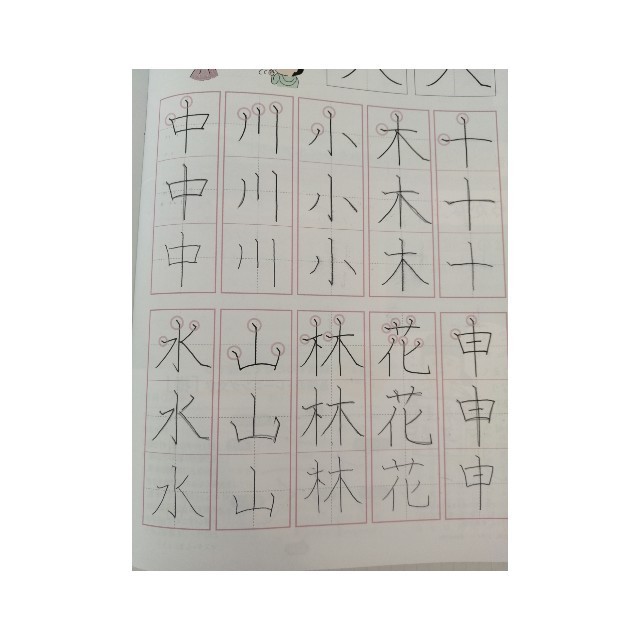 十十十
木木木
小小小
川川川
中中中
申申申
花花花
林林林
山山山
水水水